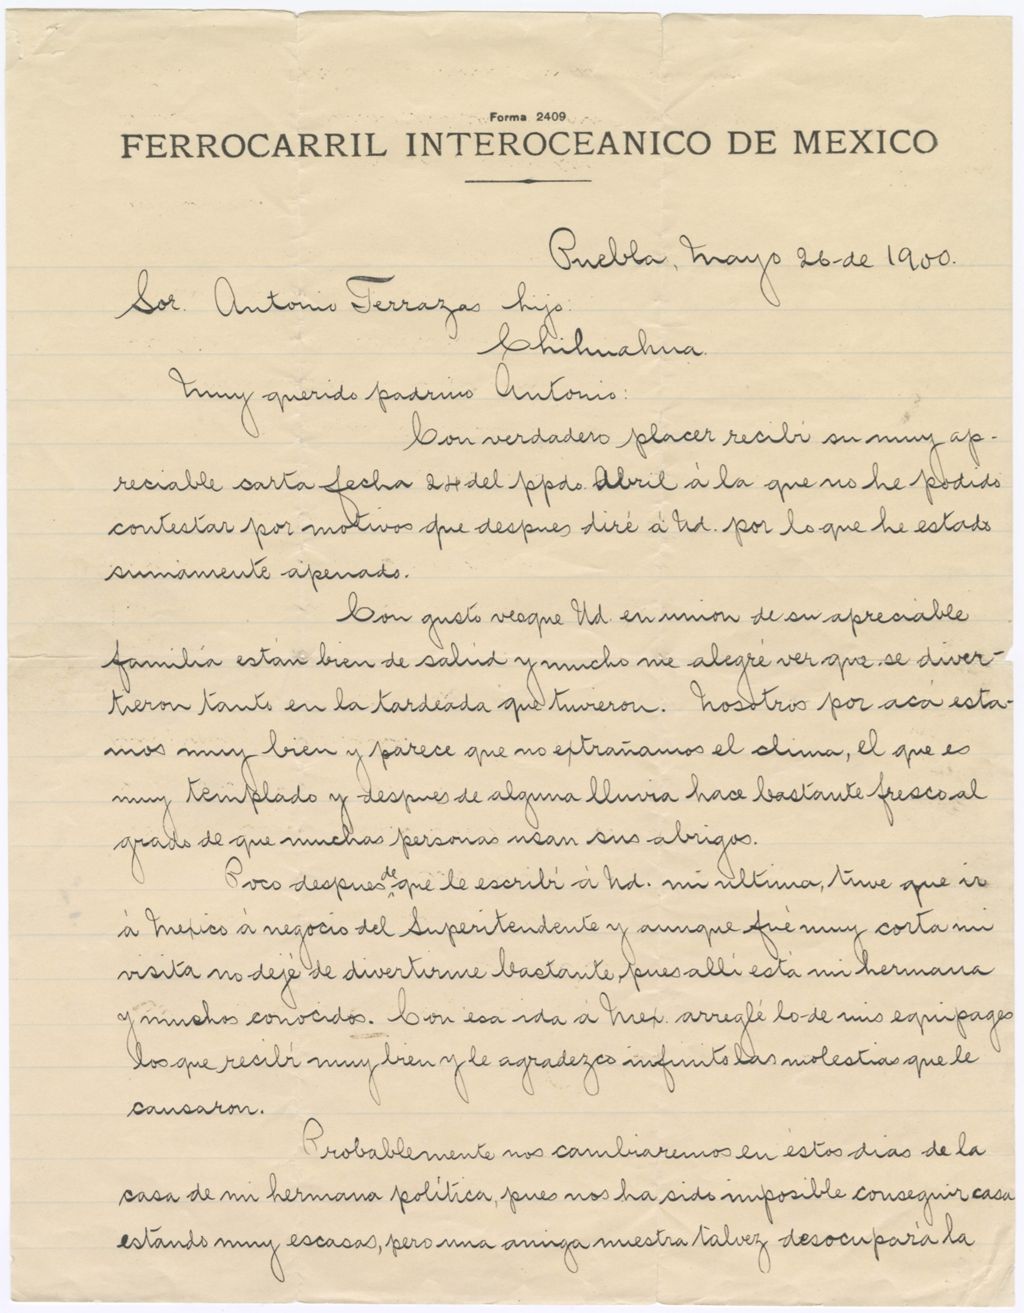 Forma 2409
FERROCARRIL INTEROCEANICO DE MEXICO
Puebla, Mayo 26 de 1900.
Sor. Antonio Terrazas hijo.
Chihuahua.
Muy querido padrino Antonio:
Con verdadero placer recibí su muy ap-
reciable carta fecha 24 del ppdo. Abril á la que no he podido
contestar por motivos que despues diré á Ud. por lo que he estado
sumamente apenado.
Con gusto veo que Ud. en union de su apreciable
familia están bien de salud y mucho me alegré ver que se diver-
tieron tanto en la tardeada que tuvieron. Nosotros por acá esta-
mos muy bien y parece que no extrañamos el clima, el que es
muy templado y despues de alguna lluvia hace bastante fresco al
grado de que muchas personas usan sus abrigos.
Poco despues de que le escribí á Ud. mi ultima, tuve que ir
á Mexico á negocio del Superitendente y aunque fué muy corta mi
visita no dejé de divertirme bastante, pues allí está mi hermana
y muchos conocidos. Con esa ida á Mex. arreglé lo de mis equipages
los que recibí muy bien y le agradezco infinito las molestias que le
causaron.
Probablemente nos cambiaremos en éstos dias de la
casa de mi hermana política, pues nos ha sido imposible conseguir casa
estando muy escasas, pero una amiga nuestra talvez desocupará la